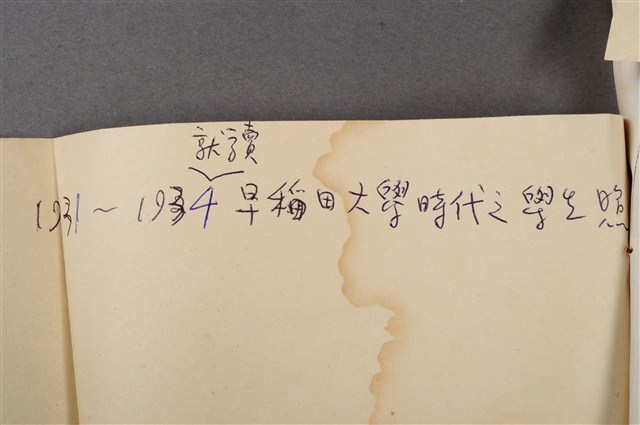 就讀
1931~1934早稲田大學時代之學生照